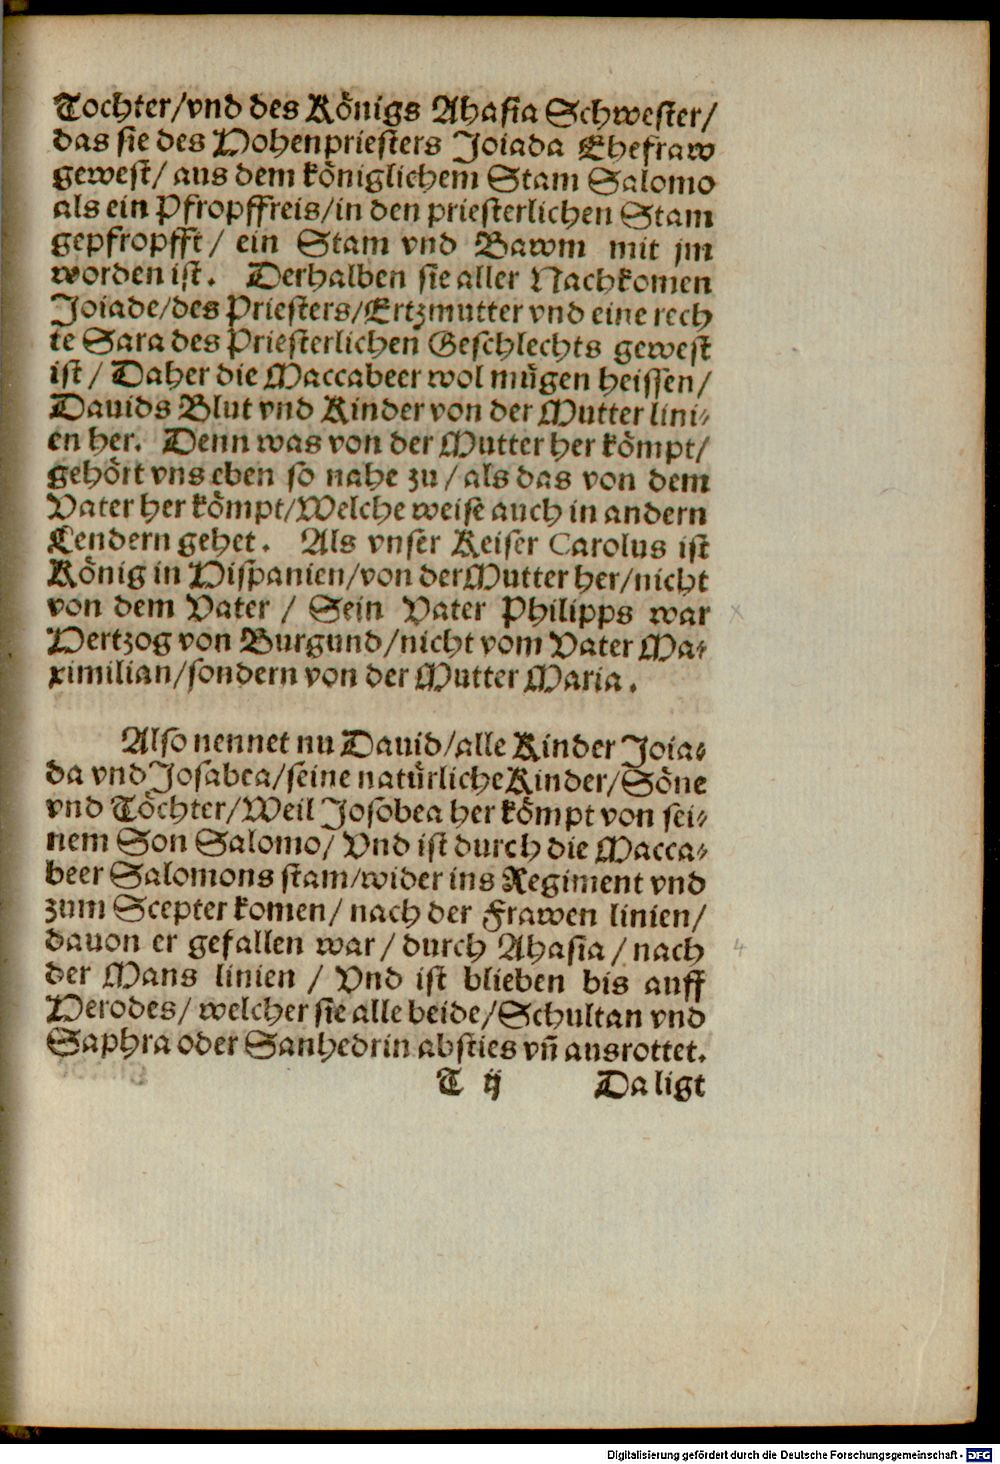 Tochter/vnd des Königs Ahasia Schwester/
das sie des Hohenpriesters Joiada Ehefraw
gewest/ aus dem königlichem Stam Salomo
als ein Pfropffreis/in den priesterlichen Stam
gepfropfft/ ein Stam vnd Bawm mit jm
worden ist. Derhalben sie aller Nachkomen
Joiade/des Priesters/Ertzmutter vnd eine rech
te Sara des Priesterlichen Geschlechts gewest
ist/ Daher die Maccabeer wol mügen heissen/
Dauids Blut vnd Kinder von der Mutter lini-
en her. Denn was von der Mutter her kömpt/
gehört vns eben so nahe zu/ als das von dem
Vater her kömpt/Welche weise auch in andern
Lendern gehet. Als vnser Keiser Carolus ist
König in Hispanien/von der Mutter her/nicht
von dem Vater/ Sein Vater Philipps war
Hertzog von Burgund/nicht vom Vater Ma-
ximilian/sondern von der Mutter Maria.
Also nennet nu Dauid/alle Kinder Joia-
da vnd Josabea/seine natürliche Kinder/Söne
vnd Töchter/Weil Josobea her kömpt von sei-
nem Son Salomo/ Vnd ist durch die Macca-
beer Salomons stam/wider ins Regiment vnd
zum Scepter komen/ nach der Frawen linien/
dauon er gefallen war/ durch Ahasia/ nach
der Mans linien/ Vnd ist blieben bis auff
Herodes/ welcher sie alle beide/Schultan vnd
Saphra oder Sanhedrin absties vn̄ ausrottet.
T ij Da ligt
Digitalisierung gefördert durch die Deutsche Forschungsgemeinschaft - DFG